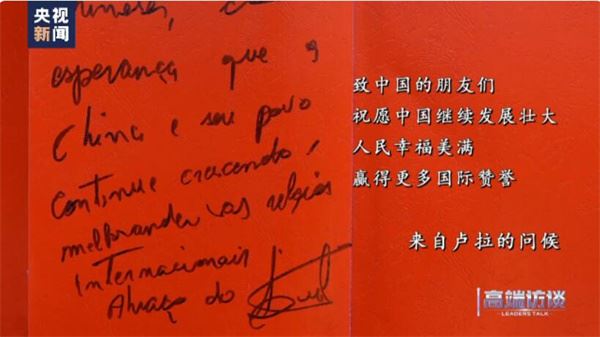 央视
新闻
esperança que a
China e seu povo
Continue crescendo,
as relações
Internacionais
Abraço do
致中国的朋友们
祝愿中国继续发展壮大
人民幸福美满
赢得更多国际赞誉
来自卢拉的问候
高端访谈
LEADERS TALK